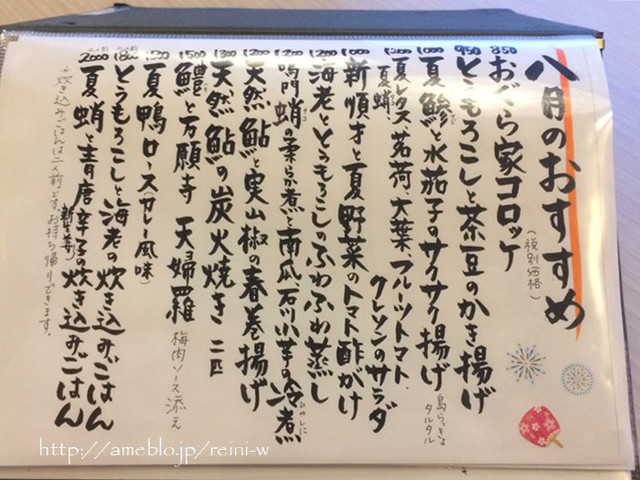 八月のおすすめ
(税別価格)
850 おぐら家コロッケ
950 とうもろこしと茶豆のかき揚げ
1000 夏鯵と水茄子のサクサク揚げ 島らっきょタルタル
1200 夏蛸、夏レタス、茗荷、大葉、フルーツトマト、
クレソンのサラダ
1000 新順才と夏野菜のトマト酢がけ
1200 海老ととうもろこしのふわふわ蒸し
1200 鳴門蛸の柔らか煮と南瓜、石川小芋の冷煮
ひやしに
1200 天然鮎と実山椒の春巻揚げ
1300 天然鮎の炭火焼き 二匹
1500 鱧と万願寺 天婦羅 梅肉ソース添え
夏鴨ロース(カレー風味)
1800 とうもろこしと海老の炊き込みごはん
2000 夏蛸と青唐辛子の炊き込みごはん
新生姜
炊き込みごはんは二人前です。お持ち帰りできます。
http://ameblo.jp/reini-w